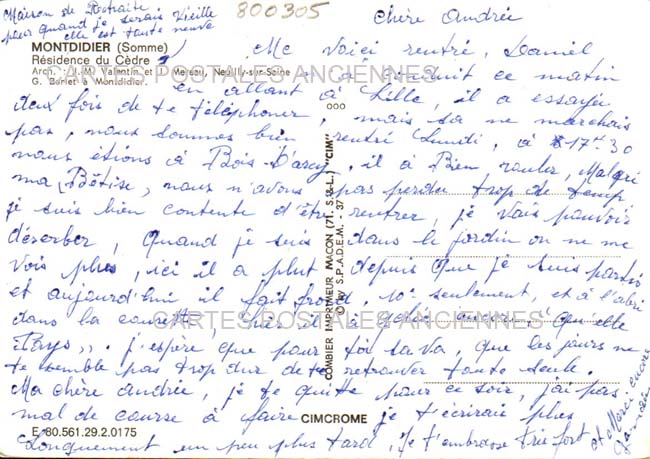 800305
Maison de Retraite
pour quand je serais Vieille
elle est toute neuve
MONTDIDIER (Somme)
Résidence du Cèdre
Arch. : J.-M. Valentin et Mereau, Neuilly-sur-Seine
G. Barlet à Montdidier.
CARTES POSTALES ANCIENNES
Chère Andrée
Me voici rentré, Daniel
conduit ce matin
en allant à Lille, il a essayé
deux fois de te téléphoner, mais sa ne marchais
pas, nous sommes bien rentré Lundi, à 17h30
nous étions à Bois D'arcy, il à Bien rouler, Malgré
ma Bêtise, nous n'avons pas perdu trop de temp
je suis bien contente d'être rentrer, je Vais pouvoir
déserber, Quand je suis dans le jardin on ne me
Vois plus, ici il a plut depuis que je suis partis
et aujourd'hui il fait froid, 10° seulement, et à l'abri
dans la courette, hier il à
Pays,, . j'espère que pour toi sa Va, que les jours ne
te semble pas trop dur de te retrouver toute seule.
Ma chère andrée, je te quitte pour ce soir, j'ai pas
mal de course à faire je t'écrirais plus
Longuement un peu plus tard, Je t'embrasse très fort
et Merci encore
CARTES POSTALES ANCIENNES
COMBIER IMPRIMEUR MACON (71. S.-&-L.) "CIM"
© by S.P.A.D.E.M. - 37
CIMCROME
E 80.561.29.2.0175